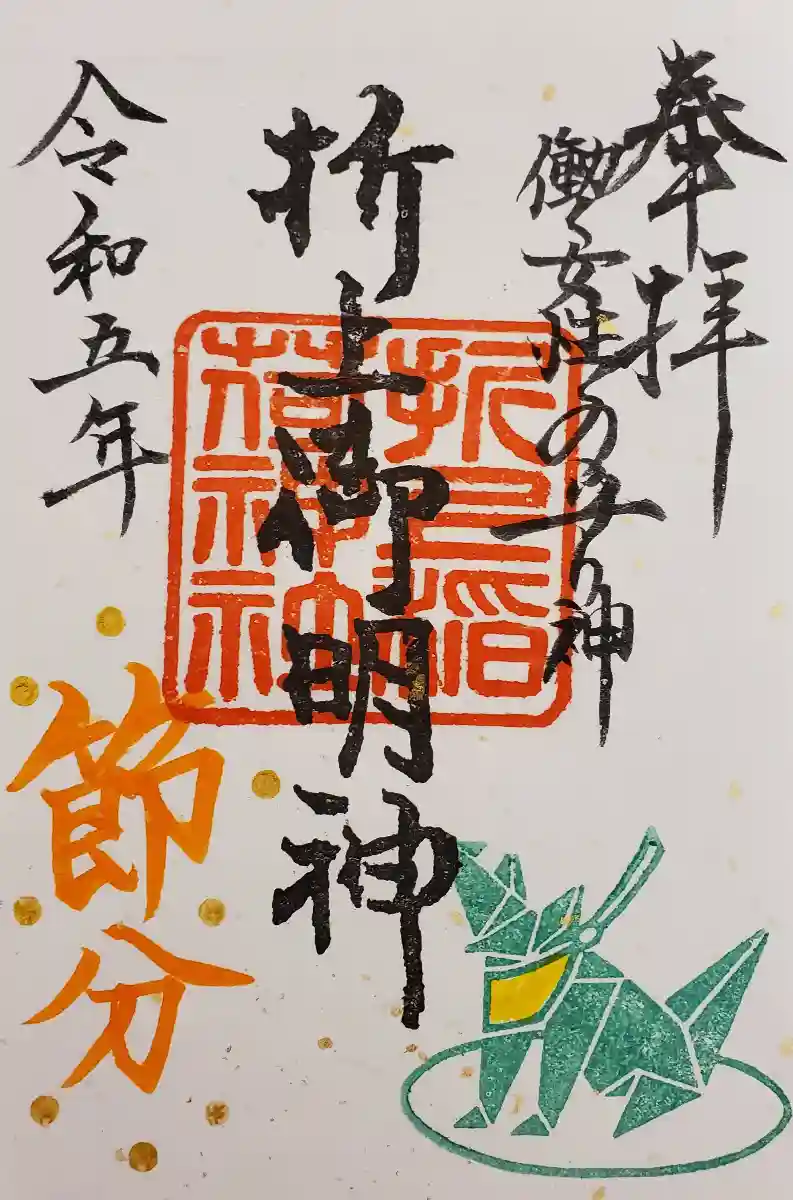 奉拝
働く女性の守り神
折上御明神
折上稲荷神社
令和五年
節分